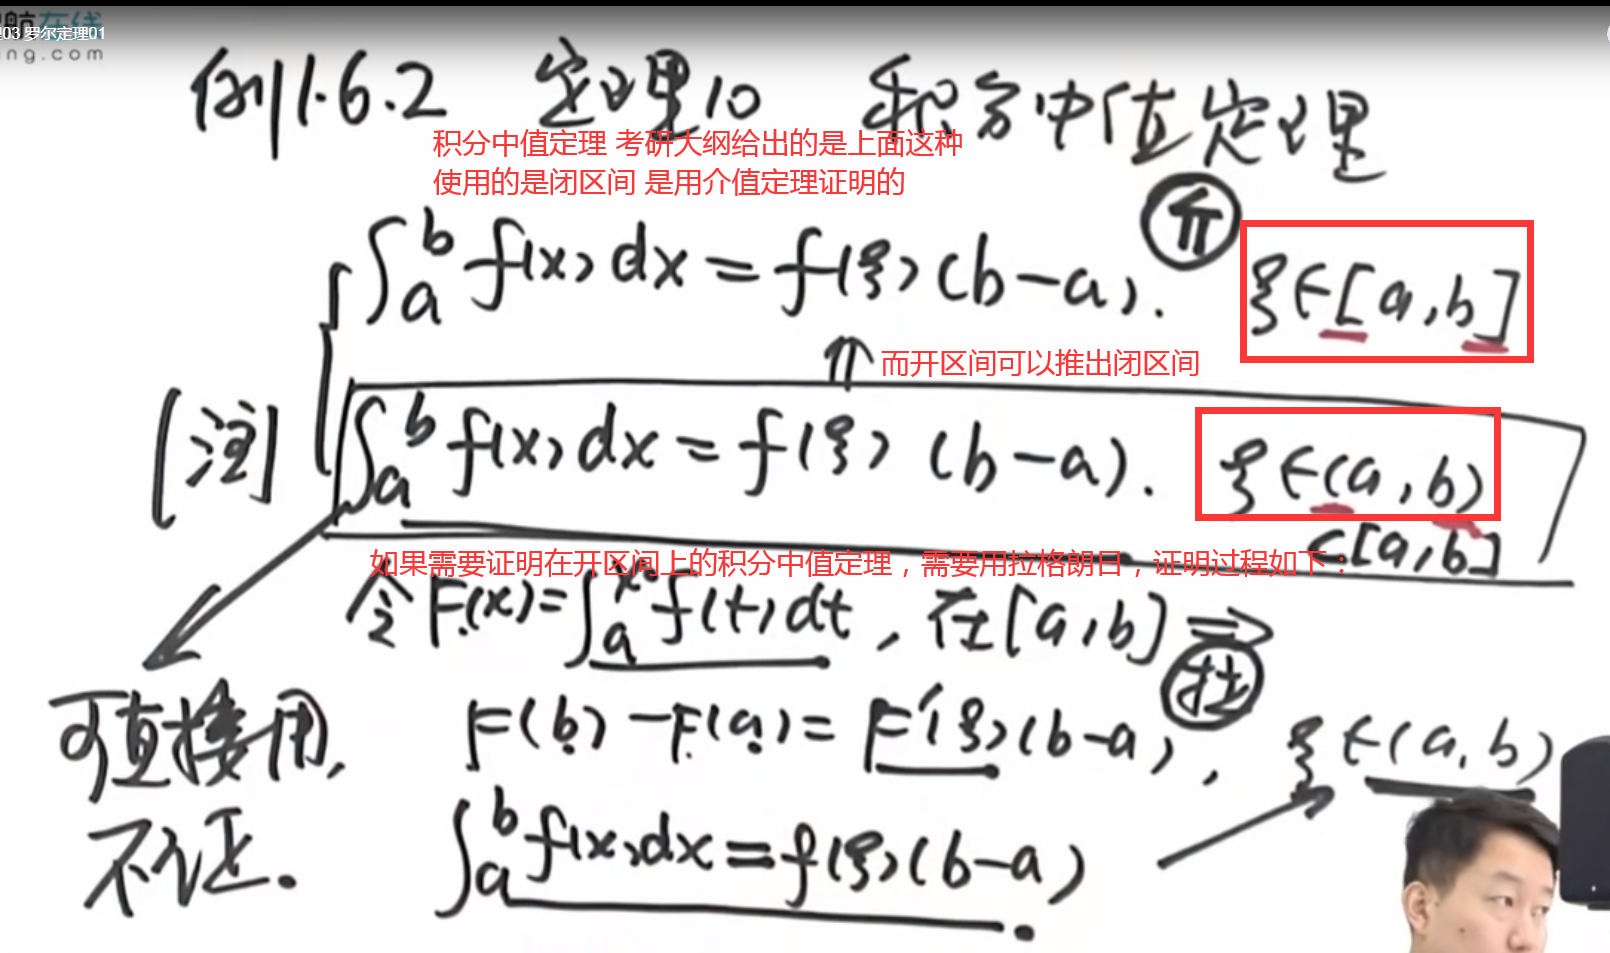 航在线
里03 罗尔定理01
ng.com
例1.6.2 定理10 积分中值定理
积分中值定理 考研大纲给出的是上面这种
使用的是闭区间 是用介值定理证明的
∫ₐᵇ f(x)dx = f(ξ)(b-a). 介 ξ∈[a,b]
⇑ 而开区间可以推出闭区间
[注] ∫ₐᵇ f(x)dx = f(ξ)(b-a). ξ∈(a,b)
⊂[a,b]
如果需要证明在开区间上的积分中值定理，需要用拉格朗日，证明过程如下：
令F(x)=∫ₐˣ f(t)dt, 在[a,b] ⇒
拉
可直接用, F(b)-F(a)=F'(ξ)(b-a), ξ∈(a,b)
不证. ∫ₐᵇ f(x)dx=f(ξ)(b-a)